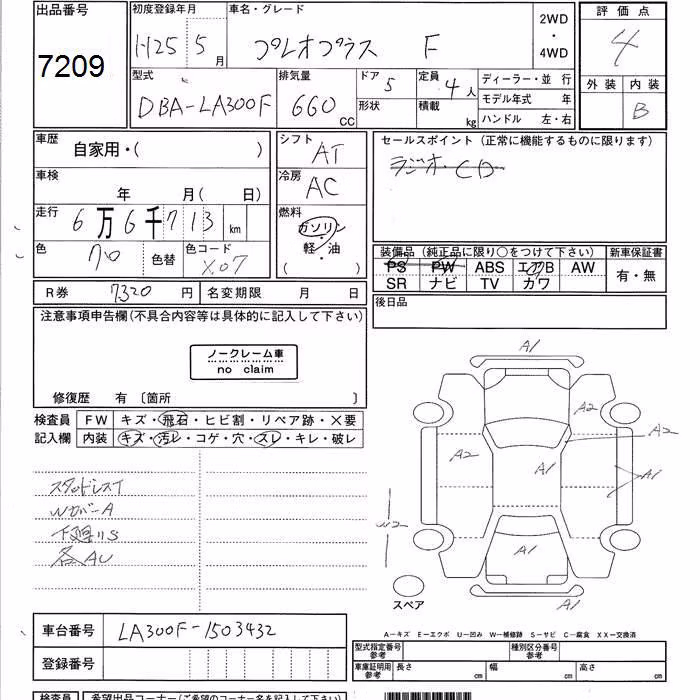 出品番号 初度登録年月 車名・グレード 2WD ・ 4WD 評価点
7209 H25 5月 プレオプラス F 4
型式 排気量 ドア 定員 ディーラー・並 行 外装 内装
DBA-LA300F 660 CC 5 4人 モデル年式 年 B
形状 積載 kg ハンドル 左・右
車歴 自家用・( ) シフト AT セールスポイント (正常に機能するものに限ります)
ラジオ CD
車検 年 月 (日) 冷房 AC
走行 6万6千713 km 燃料 ガソリン・軽・油 ( )
色 クロ 色替 色コード X07
装備品 (純正品に限り○をつけて下さい) 新車保証書
PS PW ABS エアB AW 有・無
SR ナビ TV カワ
R券 7320 円 名変期限 月 日 後日品
注意事項申告欄(不具合内容等は具体的に記入して下さい)
ノークレーム車
no claim
修復歴 有 〔箇所 〕
検査員 FW キズ・飛石・ヒビ割・リペア跡・X要
記入欄 内装 キズ・汚レ・コゲ・穴・スレ・キレ・破レ
スタッドレスT
WカバーA
下廻りS
各AU
A1
A2
A2
A2
A1
A1
W2
A1
A1
スペア
A-キズ E-エクボ U-凹み W-補修跡 S-サビ C-腐食 XX-交換済
車台番号 LA300F-1503432
登録番号
型式指定番号 参考 種別区分番号 参考
車庫証明用 参考 長さ cm 幅 cm 高さ cm
検査員 希望出品コーナー(ご希望のコーナー名を記入下さい)